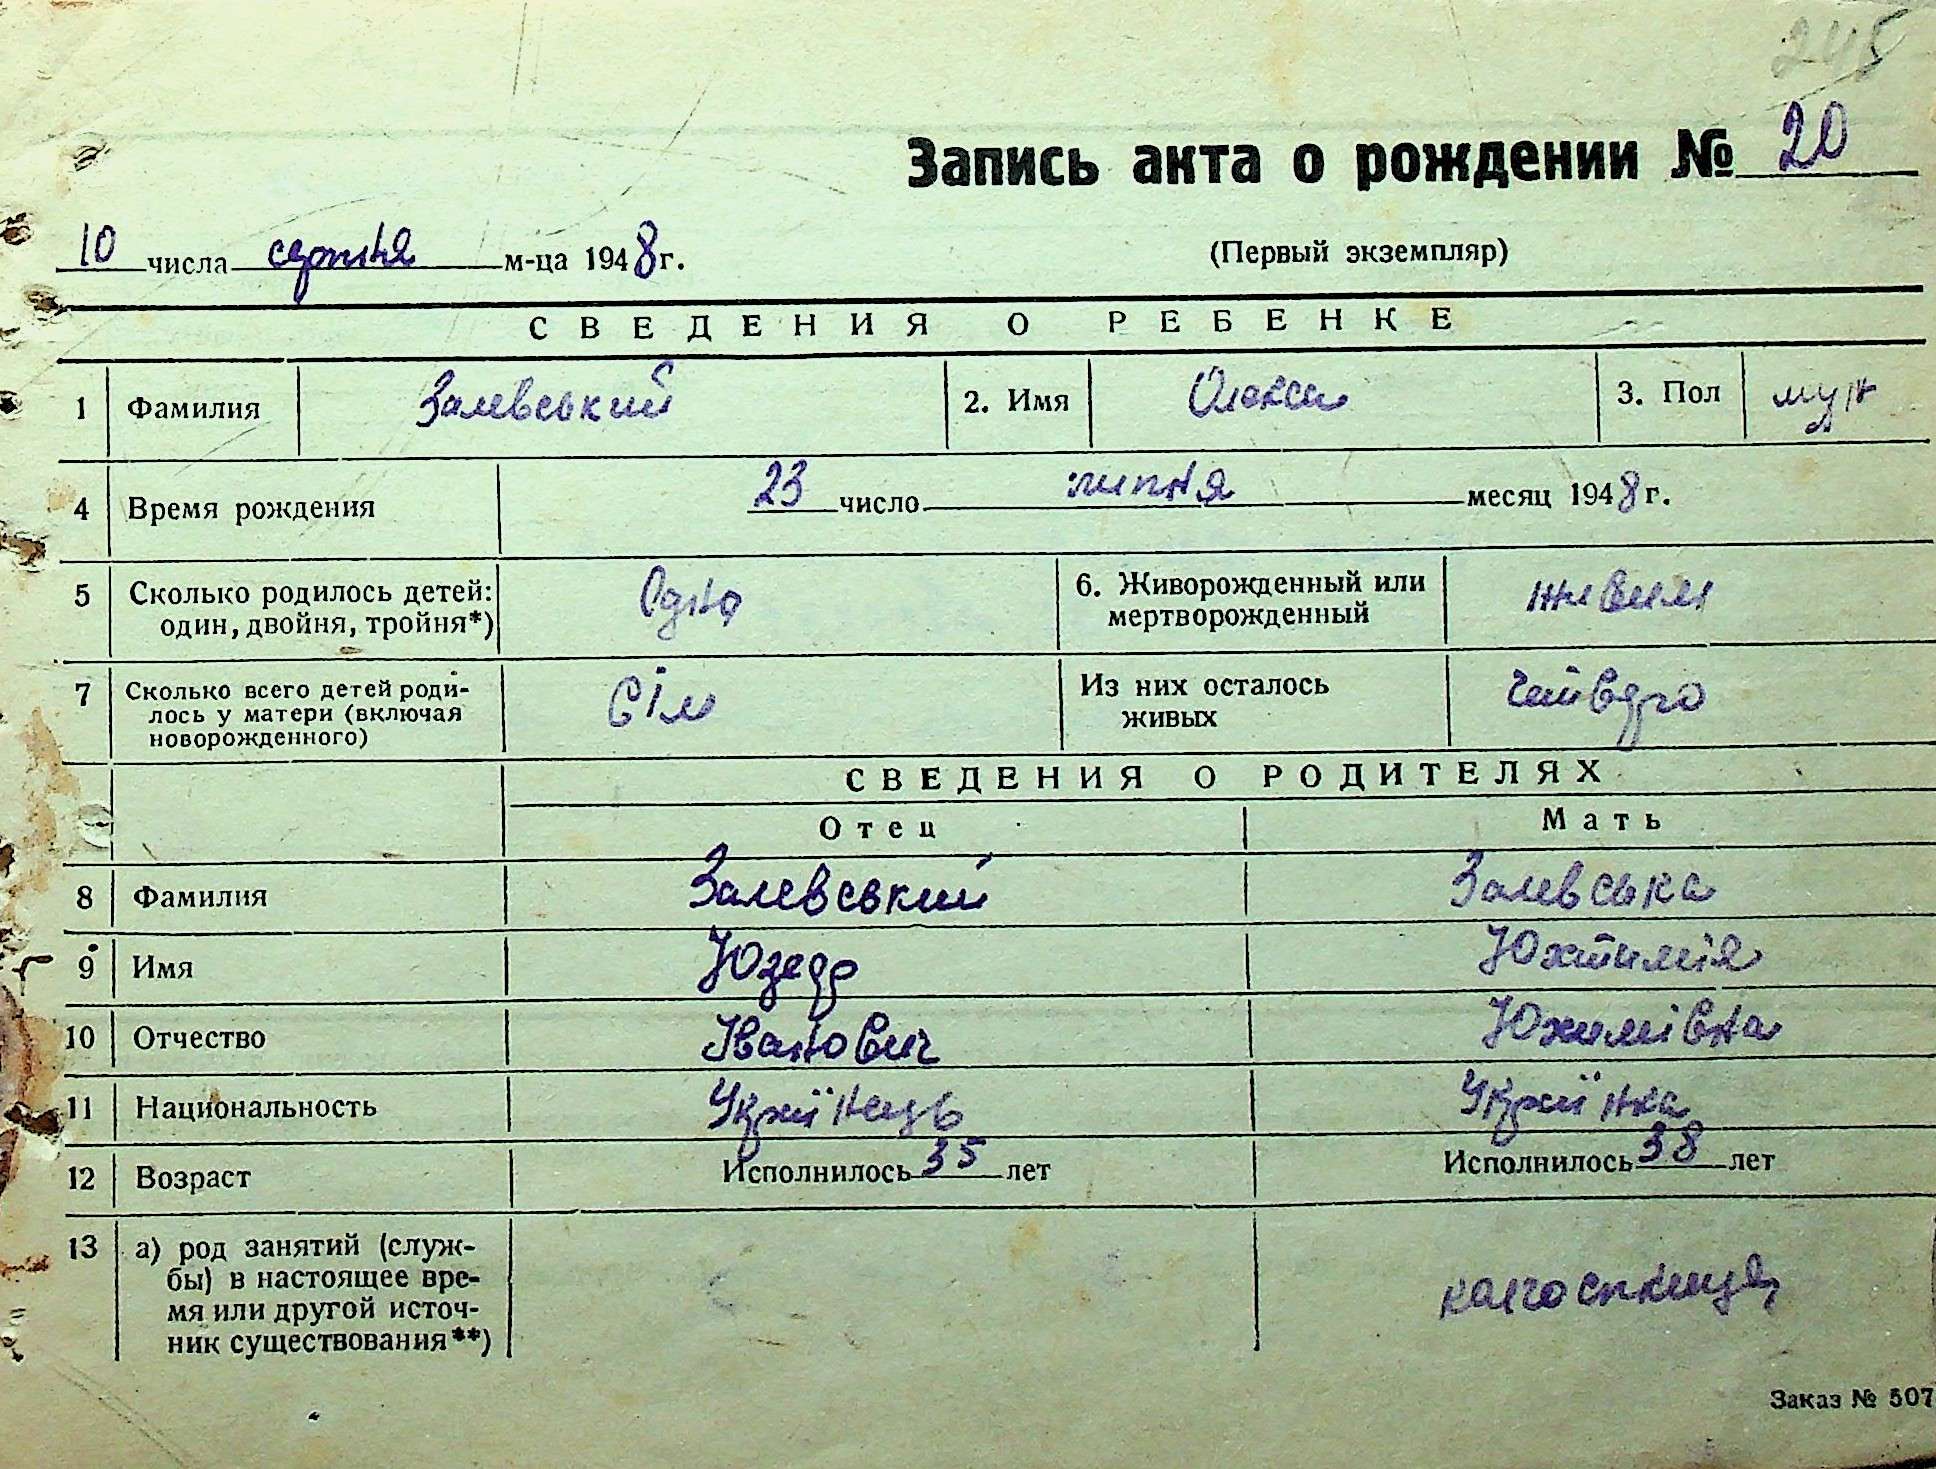 245
Запись акта о рождении № 20
10 числа серпня м-ца 1948 г.
(Первый экземпляр)
СВЕДЕНИЯ О РЕБЕНКЕ
1 Фамилия Залевський 2. Имя Олекса 3. Пол муж
4 Время рождения 23 число липня месяц 1948 г.
5 Сколько родилось детей: Одно 6. Живорожденный или живим
один, двойня, тройня*) мертворожденный
7 Сколько всего детей роди- Сім Из них осталось Четверо
лось у матери (включая живых
новорожденного)
СВЕДЕНИЯ О РОДИТЕЛЯХ
Отец Мать
8 Фамилия Залевський Залевська
9 Имя Юзеф Юхтимія
10 Отчество Іванович Юхимівна
11 Национальность Украïнець Украïнка
12 Возраст Исполнилось 35 лет Исполнилось 38 лет
13 а) род занятий (служ-
бы) в настоящее вре- колгоспниця
мя или другой источ-
ник существования**)
Заказ № 507